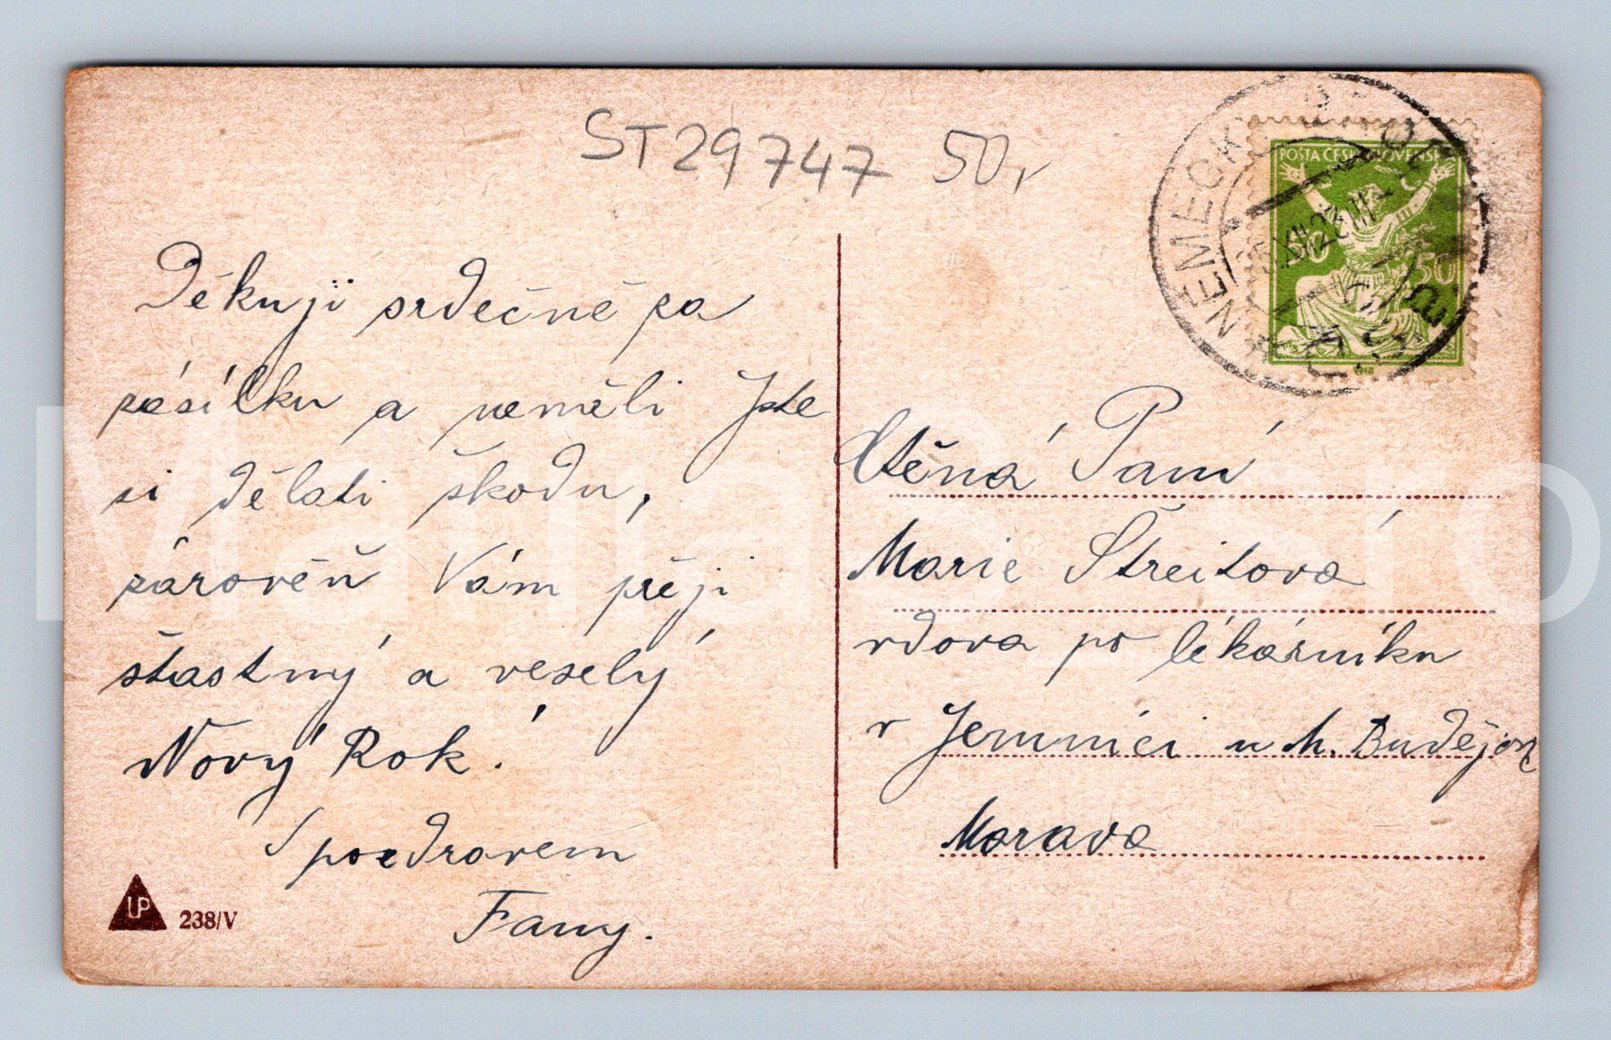 ST29747 50,-
POSTA ČESKOSLOVENSKÁ
50
NĚMECKÝ BROD
Děkuji srdečně za
zásilku a neměli Jste
si dělati škodu,
zárověň Vám přěji
štastný a veselý
Nový Rok!
S pozdravem
Fany.
Ctěná Paní
Marie Štreitová
vdova po lékárníku
v Jemnici u M. Budějov
Morava
LP 238/V